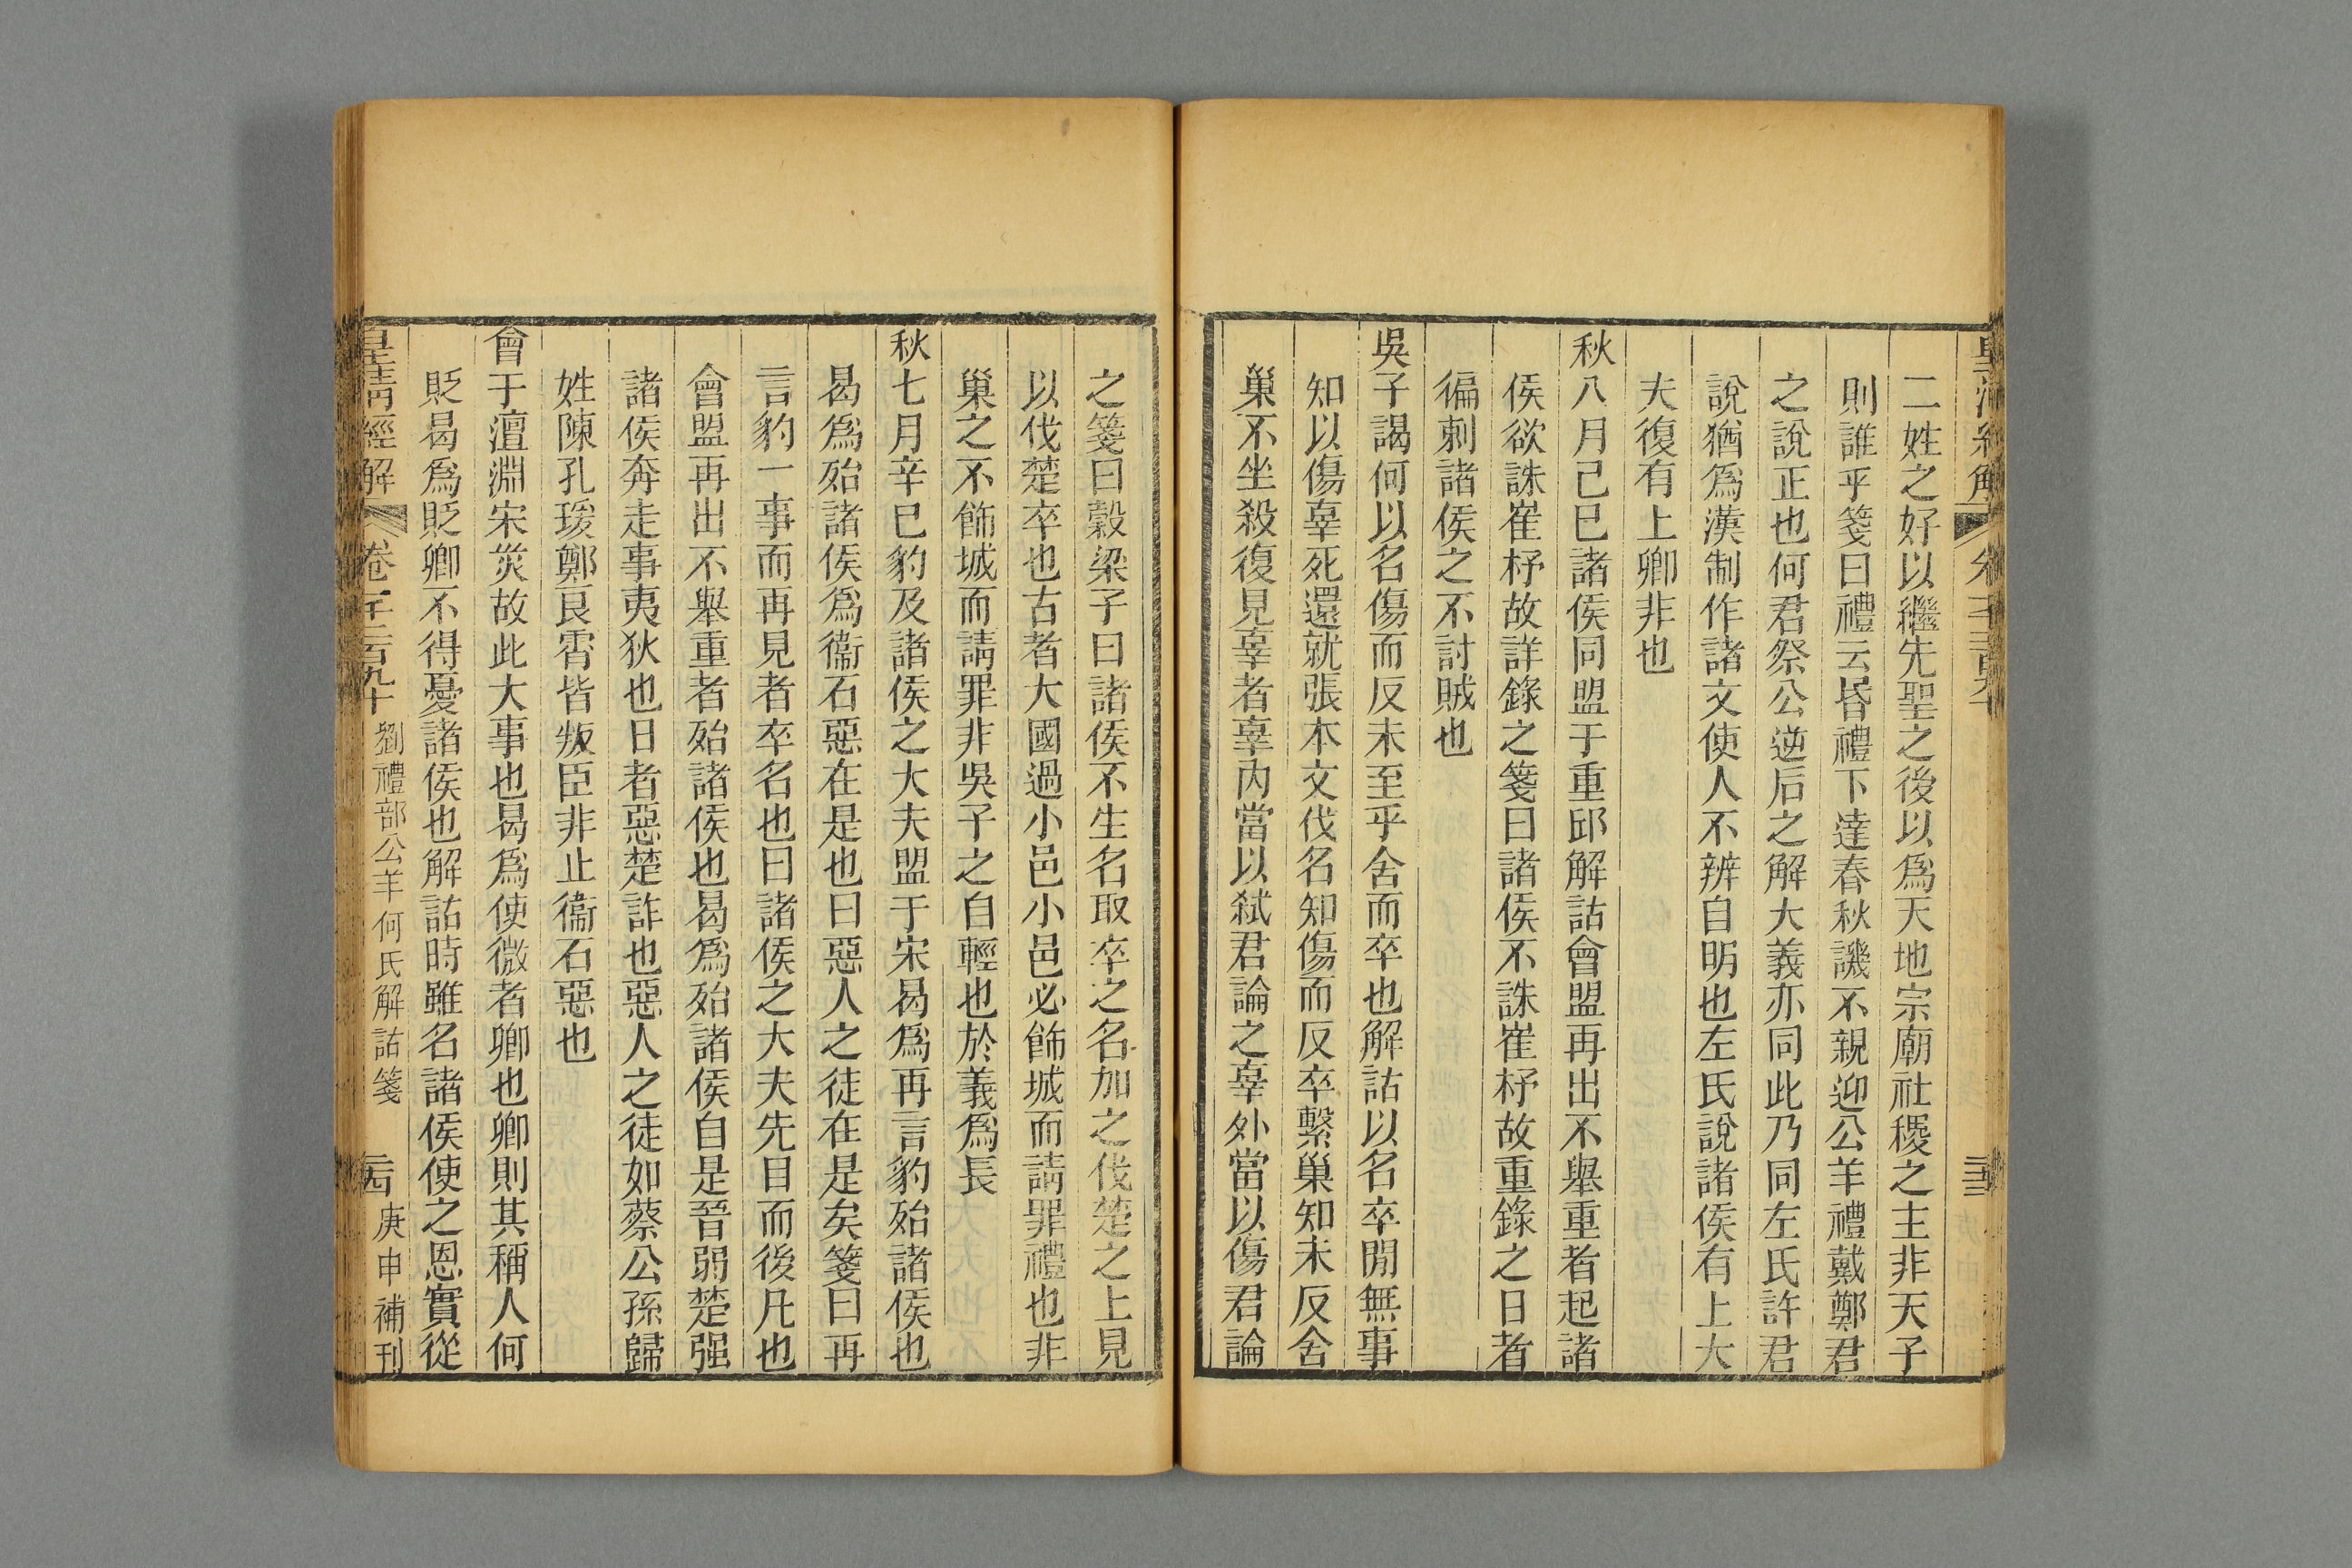 二姓之好以繼先聖之後以爲天地宗廟社稷之主非天子
則誰乎箋曰禮云昏禮下達春秋譏不親迎公羊禮戴鄭君
之說正也何君祭公逆后之解大義亦同此乃同左氏許君
說猶爲漢制作諸文使人不辨自明也左氏說諸侯有上大
夫復有上卿非也
秋八月己巳諸侯同盟于重邱解詁會盟再出不舉重者起諸
侯欲誅崔杼故詳錄之箋曰諸侯不誅崔杼故重錄之日者
徧刺諸侯之不討賊也
吳子謁何以名傷而反未至乎舍而卒也解詁以名卒閒無事
知以傷辜死還就張本文伐名知傷而反卒繫巢知未反舍
巢不坐殺復見辜者辜內當以弒君論之辜外當以傷君論
之箋曰穀梁子曰諸侯不生名取卒之名加之伐楚之上見
以伐楚卒也古者大國過小邑小邑必飾城而請罪禮也非
巢之不飾城而請罪非吳子之自輕也於義爲長
秋七月辛巳豹及諸侯之大夫盟于宋曷爲再言豹殆諸侯也
曷爲殆諸侯爲衞石惡在是也曰惡人之徒在是矣箋曰再
言豹一事而再見者卒名也曰諸侯之大夫先目而後凡也
會盟再出不舉重者殆諸侯也曷爲殆諸侯自是晉弱楚强
諸侯奔走事夷狄也日者惡楚詐也惡人之徒如蔡公孫歸
姓陳孔瑗鄭良霄皆叛臣非止衞石惡也
會于澶淵宋烖故此大事也曷爲使微者卿也卿則其稱人何
貶曷爲貶卿不得憂諸侯也解詁時雖名諸侯使之恩實從
皇淸經解 卷一千二百九十 劉禮部公羊何氏解詁箋 庚申補刊